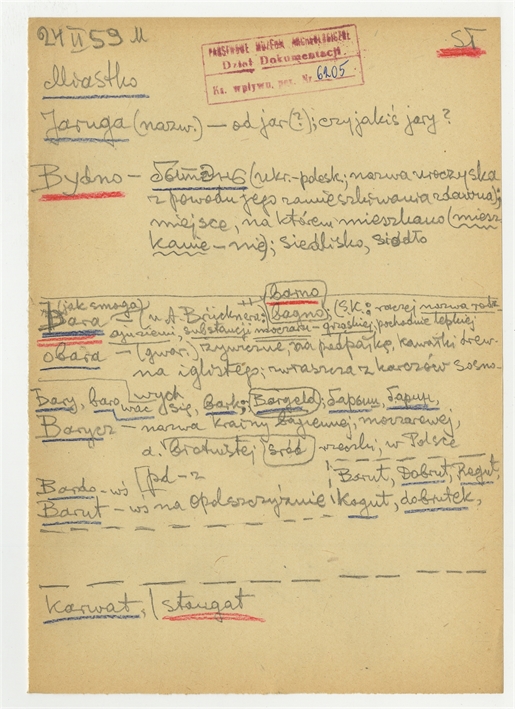 24 II 59 M
ST
PAŃSTWOWE MUZEUM ARCHEOLOGICZNE
Dział Dokumentacji
Ks. wpływu, poz. Nr 6205
Miastko
Jaruga (nazw.) – od jar (?); czy jakiś jary?
Bydno – (ukr.-polesk; nazwa uroczyska
z powodu jego zamieszkiwania zdawna);
miejsce, na którem mieszkano (miesz
kanie – nie); siedlisko, siodło
barno
(jak smoga)
Bara u A. Brücknera: bagno; (S.K.: raczej nazwa
substancji grząskiej, pochodnie lepkiej
obara – (gwar.) żywiczne, na podpałkę, kawałki drew-
na iglastego; zwłaszcza z karczów sosno-
wych
Bary, barować się, Bark; Bargeld;
Barycz – nazwa krainy bagiennej, moczarowej,
d. Bratwstej śród-rzeczki, w Polsce
Bardo – wś pd-z
Barut, Dobrut, Rogut,
Barut – wś na Opolszczyźnie Kogut, dobrutek,
Karwat, stangat